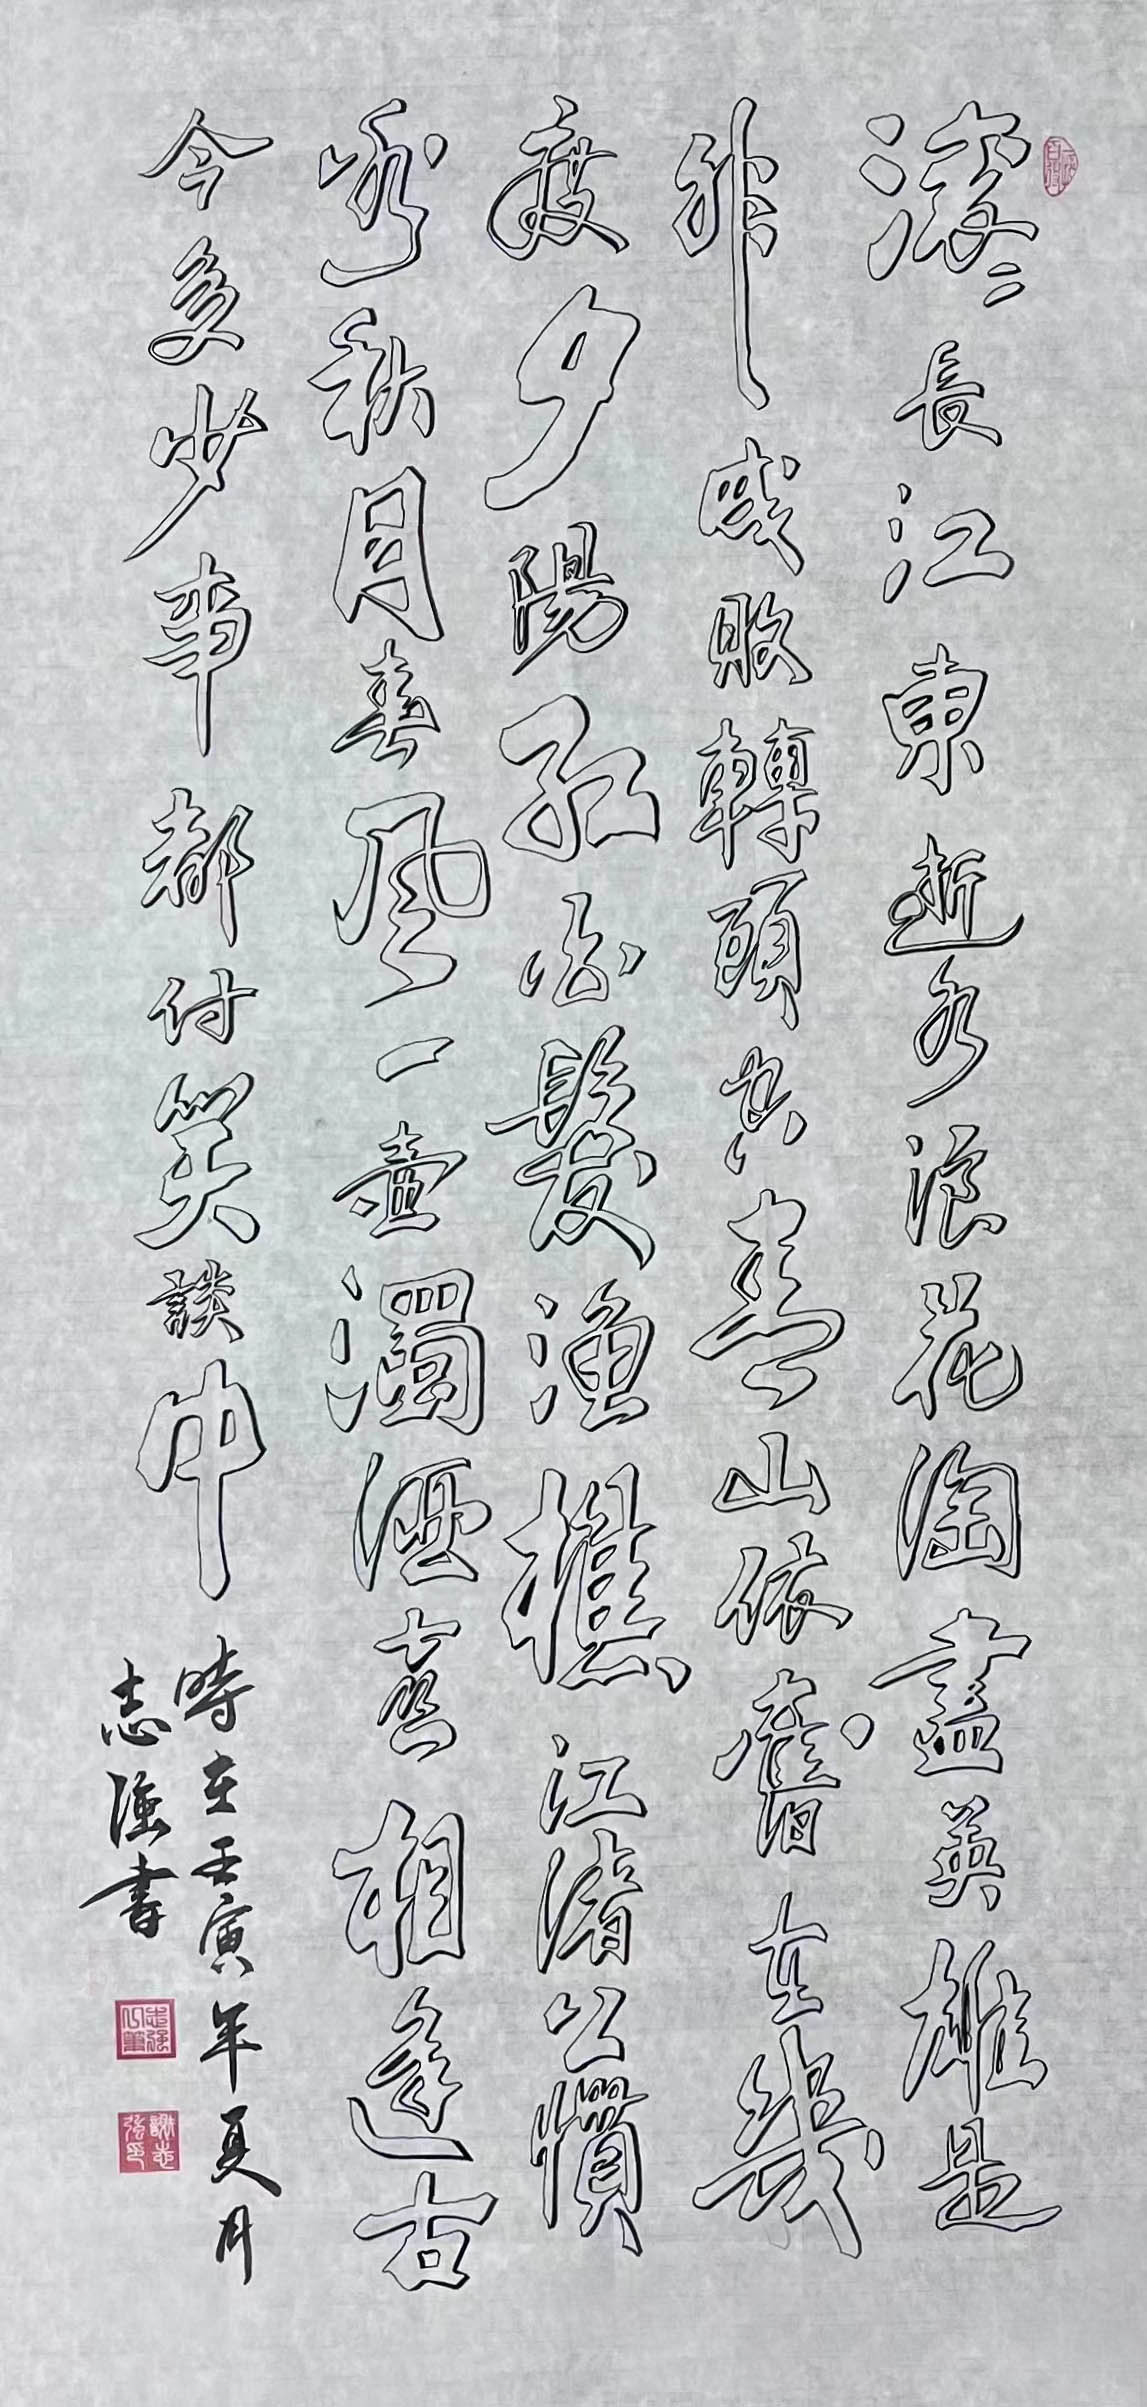 滚〻長江東逝水浪花淘盡英雄是
非成敗轉頭空青山依舊在幾
度夕陽紅白髮漁樵江渚上慣
看秋月春風一壺濁酒喜相逢古
今多少事都付笑談中
時在壬寅年夏月
志强書
謝志强印